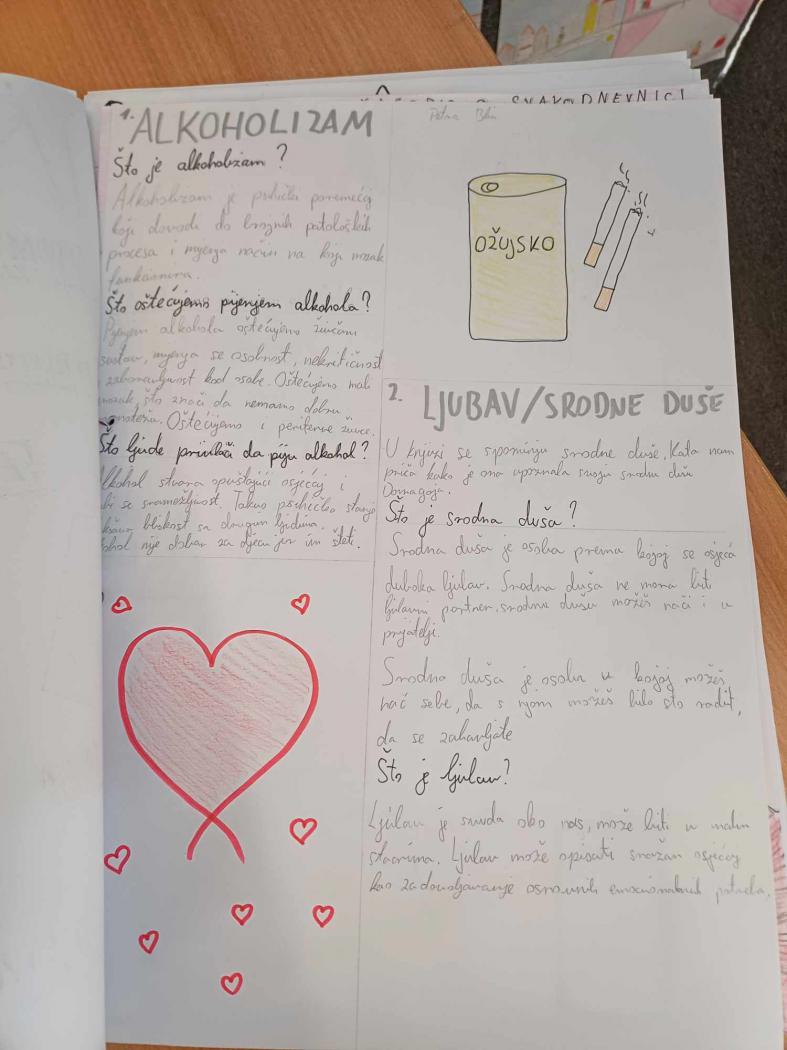 SVAKODNEVNICI
1. ALKOHOLIZAM
Što je alkoholizam?
Alkoholizam je psihički poremećaj
koji dovodi do brojnih patoloških
procesa i mjenja način na koji mozak
funkcionira.
Što oštećujemo pijenjem alkohola?
Pijenjem alkohola oštećujemo živčani
sustav, mjenja se osobnost, nekritičnost
zaboravljivost kod osobe. Oštećujemo mali
mozak, što znači da nemamo dobru
Oštećujemo i periferne živce.
Što ljude privlači da piju alkohol?
Alkohol stvara opuštajući osjećaj i
se sramežljivost. Takvo psihičko stanje
bliskost sa drugim ljudima.
nije dobar za djecu jer im šteti.
Petra
OŽUJSKO
2. LJUBAV/SRODNE DUŠE
U knjizi se spominju srodne duše. Kata nam
priča kako je ona upoznala svoju srodnu dušu
Domagoja.
Što je srodna duša?
Srodna duša je osoba prema kojoj se osjeća
duboka ljubav. Srodna duša ne mora biti
ljubavni partner, srodnu dušu možeš naći i u
prijatelji.
Srodna duša je osoba u kojoj možeš
nać sebe, da s njom možeš bilo što radit,
da se zabavljate
Što je ljubav?
Ljubav je svuda oko nas, može biti u malim
stvarima. Ljubav može opisati snažan osjećaj
kao zadovoljavanje osnovnih emocionalnih potreba.